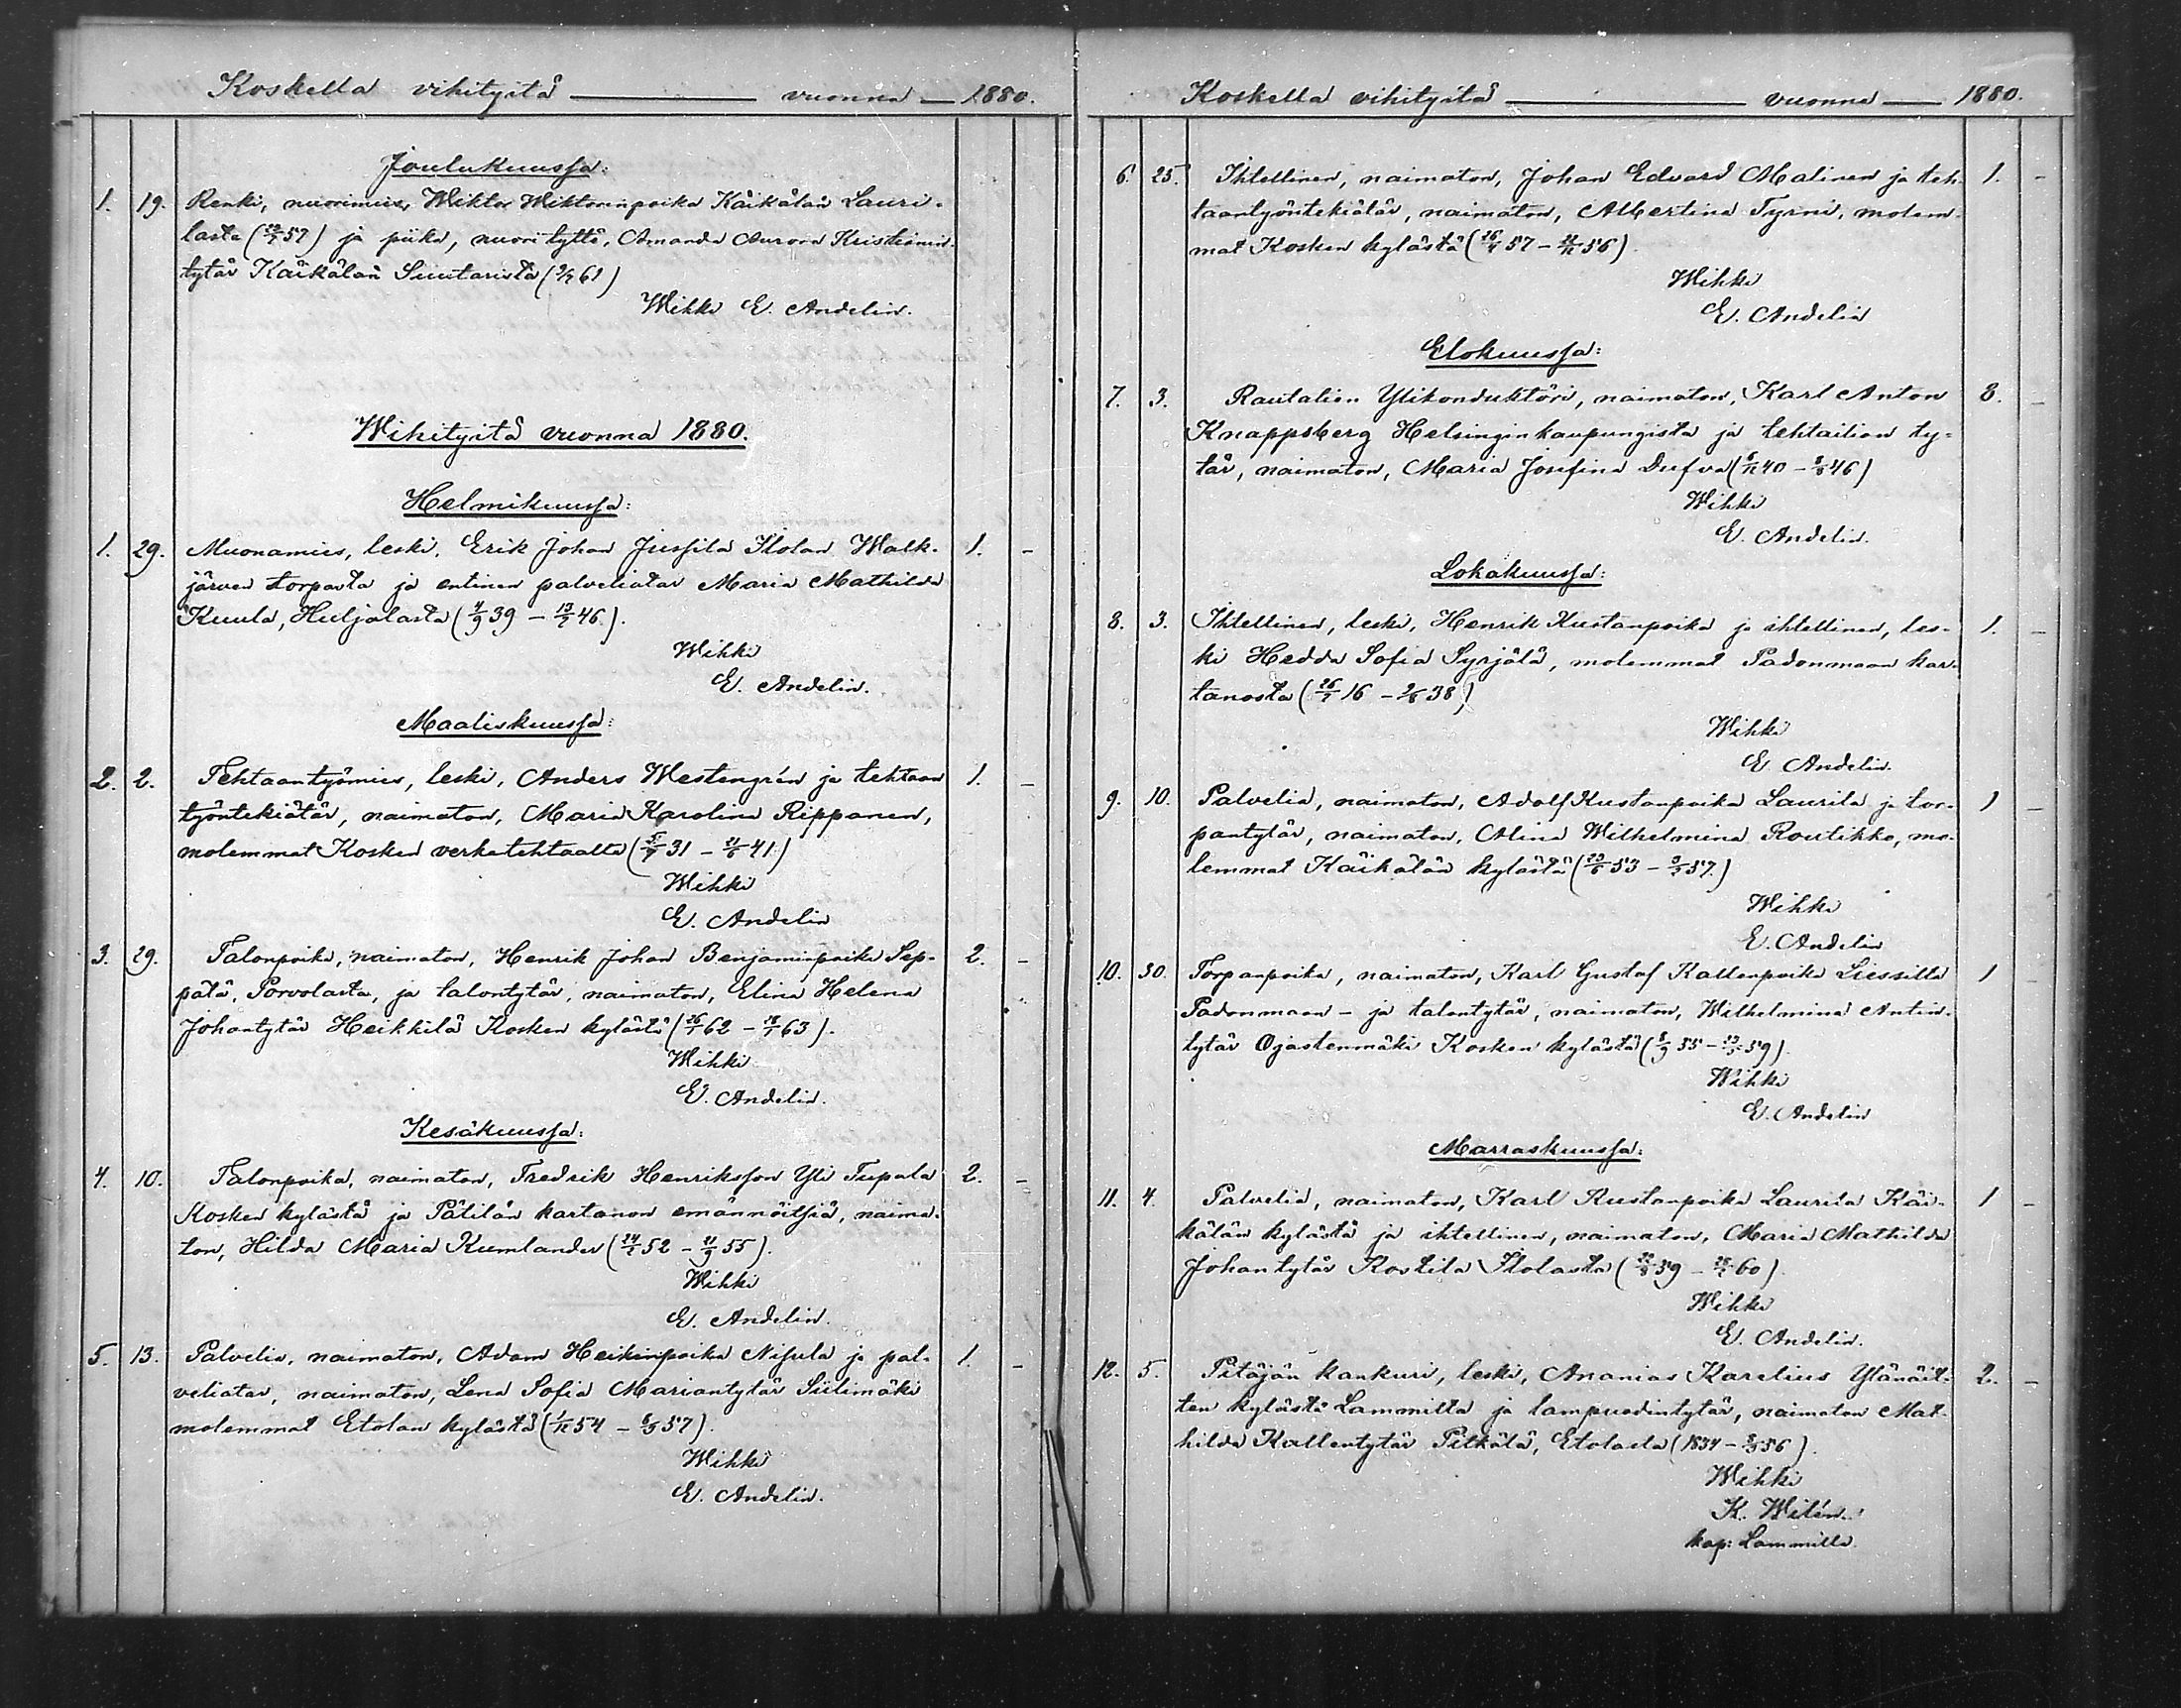 Koskella vihityitä vuonna 1880.
Joulukuussa:
1. 19. Renki, nuorimies, Wiktor Wiktorinpoika Käikälän Lauri-
lasta ( 57) ja piika, nuori tyttö, Amanda Aurora Kristianin-
tytär Käikälän Suutarista ( 61)
Wihki E. Andelin.
Wihityitä vuonna 1880.
Helmikuussa:
1. 29. Muonamies, leski, Erik Johan Jussila Ilolan Walk- 1. -
järven torpasta ja entinen palveliatar Maria Mathilda
Kuula, Huljalasta (4/9 39 - 13/7 46).
Wihki
E. Andelin.
Maaliskuussa:
2. 2. Tehtaantyömies, leski, Anders Westengrén ja tehtaan 1. -
työntekiätär, naimaton, Maria Karolina Ripponen,
molemmat Kosken verkatehtaalta ( 31 - 21/6 41)
Wihki
E. Andelin
3. 29. Talonpoika, naimaton, Henrik Johan Benjaminpoika Sep- 2. -
pälä, Porvolasta, ja talontytär, naimaton, Elina Helena
Johantytär Heikkilä Kosken kylästä (26/1 62 - 18/1 63).
Wihki
E. Andelin.
Kesäkuussa:
4. 10. Talonpoika, naimaton, Fredrik Henriksson Yli Tupala 2. -
Kosken kylästä ja Pätilän kartanon emännöitsiä, naima-
ton, Hilda Maria Kumlander ( 52 - 55).
Wihki
E. Andelin.
5. 13. Palvelia, naimaton, Adam Heikinpoika Nisula ja pal- 1. -
veliatar, naimaton, Lena Sofia Mariantytär Siilimäki
molemmat Etolan kylästä ( 54 - 57).
Wihki
E. Andelin.
Koskella vihityitä vuonna 1880.
6. 25. Ihtellinen, naimaton, Johan Edvard Malinen ja teh- 1. -
taantyöntekiätär, naimaton, Albertina Tyrni, molem-
mat Kosken kylästä (26/4 57 - 56).
Wihki
E. Andelin
Elokuussa:
7. 3. Rautatien Ylikonduktöri, naimaton, Karl Anton 8. -
Knappsberg Helsingin kaupungista ja tehtailian ty-
tär, naimaton, Maria Josefina Dufva ( 40 - 46)
Wihki
E. Andelin.
Lokakuussa:
8. 3. Ihtellinen, leski, Henrik Kustanpoika ja ihtellinen, les- 1. -
ki Hedda Sofia Syrjälä, molemmat Padonmaan kar-
tanosta (26/7 16 - 38)
Wihki
E. Andelin.
9. 10. Palvelia, naimaton, Adolf Kustanpoika Laurila ja tor- 1 -
pantytär, naimaton, Alina Wilhelmina Routikko, mo-
lemmat Käikälän kylästä ( 53 - 57.)
Wihki
E. Andelin
10. 30. Torpanpoika, naimaton, Karl Gustaf Kallenpoika Liessilla 1 -
Padonmaan - ja talontytär, naimaton, Wilhelmina Antin-
tytär Ojastenmäki Kosken kylästä ( 55 - 59).
Wihki
E. Andelin
Marraskuussa:
11. 4. Palvelia, naimaton, Karl Kustanpoika Laurila Käi- 1 -
kälän kylästä ja ihtellinen, naimaton, Maria Mathilda
Johantytär Kostila Ilolasta ( 39 - 60).
Wihki
E. Andelin.
12. 5. Pitäjän kankuri, leski, Ananias Karelius Ylänäit- 2. -
ten kylästä Lammilta ja lampuodintytär, naimaton Mat-
hilda Kallentytär Pitkälä, Etolasta (1834 - 56).
Wihki
K. Wilén.
kap: Lammilla